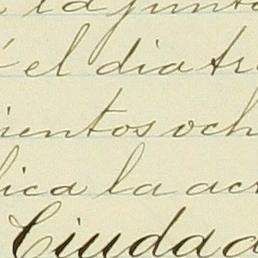 la junta
el dia tr
ientos och
lica la act
Ciudada